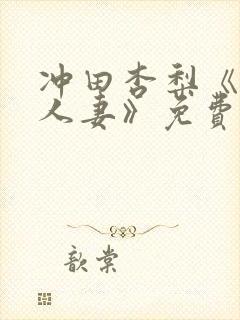 冲田杏梨《
人妻》免费
歆棠